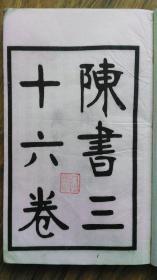 陳書三
十六卷